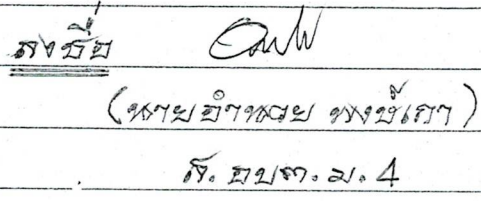 ลงชื่อ
(นายอำนวย พงษ์เภา)
ส. อบต. ม. 4